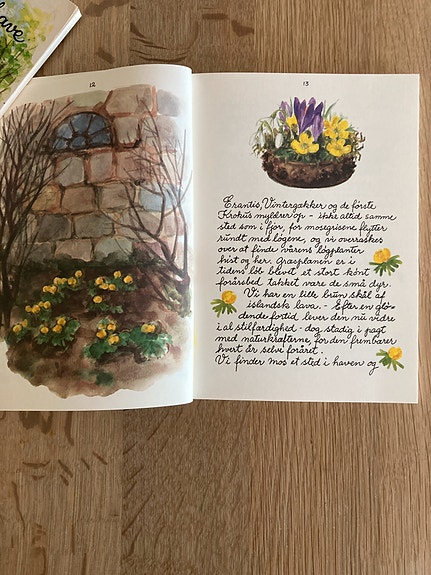 ave
12
13
Erantis, Vintergækker og de første
Krokus myldrer op - ikke altid samme
sted som i fjor, for mosegrisene flytter
rundt med løgene, og vi overraskes
over at finde vårens løgplanter
hist og her. Græsplanen er i
tidens løb blevet et stort kønt
forårsbed takket være de små dyr.
Vi har en lille brun skål af
islandsk lava. - Efter en glø-
dende fortid lever den nu videre
i al stilfærdighed - dog stadig i pagt
med naturkræfterne, for den frembærer
hvert år selve foråret.
Vi finder mos et sted i haven og